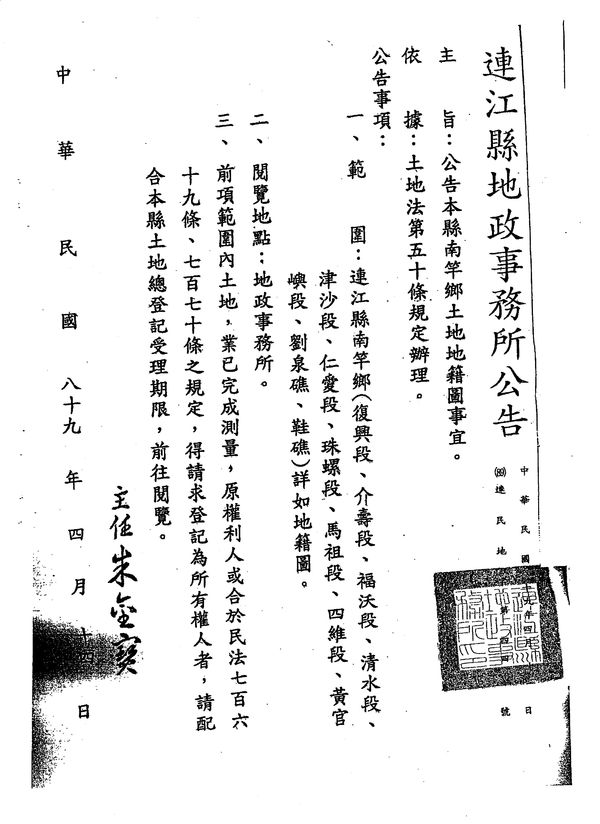 連江縣地政事務所公告
中華民國
年四
日
連民地
第
號
主　　旨：公告本縣南竿鄉土地地籍圖事宜。
依　　據：土地法第五十條規定辦理。
公告事項：
一、範　　圍：連江縣南竿鄉（復興段、介壽段、福沃段、清水段、
津沙段、仁愛段、珠螺段、馬祖段、四維段、黃官
嶼段、劉泉礁、鞋礁）詳如地籍圖。
二、閱覽地點：地政事務所。
三、前項範圍內土地，業已完成測量，原權利人或合於民法七百六
十九條、七百七十條之規定，得請求登記為所有權人者，請配
合本縣土地總登記受理期限，前往閱覽。
主任朱金寶
中華民國八十九年四月十四日